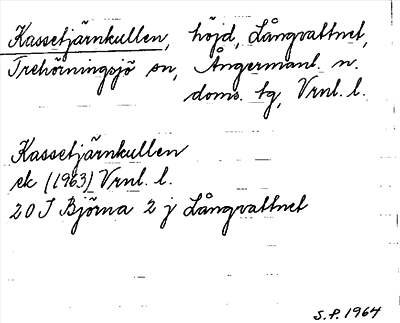 Kassetjärnkullen, höjd, Långvattnet,
Trehörningsjö sn, Ångermanl. n.
doms. tg, Vrnl. l.
Kassetjärnkullen
ek (1963) Vrnl. l.
20 I Björna 2 j Långvattnet
S.P. 1964